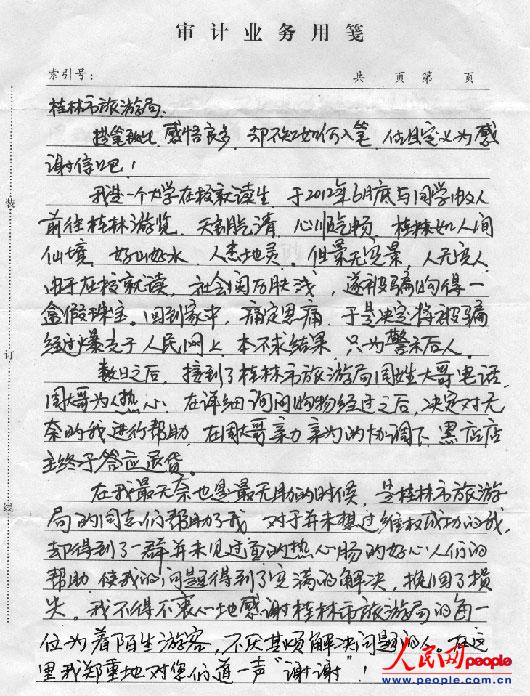 审计业务用笺
索引号： 共 页 第 页
桂林市旅游局：
提笔 感悟良多 却不知如何入笔，估且定义为感
谢信吧！
我是一个大学在校就读生，于2012年6月底与同学 人
前往桂林游览， 清，心 畅，桂林如人间
仙境，好山好水，人杰地灵。但景无完景，人无完人，
由于在校就读，社会阅历肤浅，遂被骗购得一
盒假珠宝。回到家中，痛定思痛，于是决定将被骗
经过爆克于人民网上，本不求结果，只为警示后人。
数日之后，接到了桂林市旅游局周姓大哥电话，
周大哥为人热心，在详细询问购物经过之后，决定对无
奈的我进行帮助，在周大哥亲力亲为的协调下，黑店店
主终于答应退货。
在我最无奈也是最无助的时候，是桂林市旅游
局的同志们帮助了我，对于并未想过维权成功的我，
却得到了一群并未见过面的热心肠的好心人们的
帮助，使我的问题得到了完满的解决，挽回了损
失，我不得不衷心地感谢桂林市旅游局的每一
位为着陌生游客，不厌其烦解决问题的人。在这
里我郑重地对您们道一声“谢谢”！
装
订
线
人民网people
www.people.com.cn